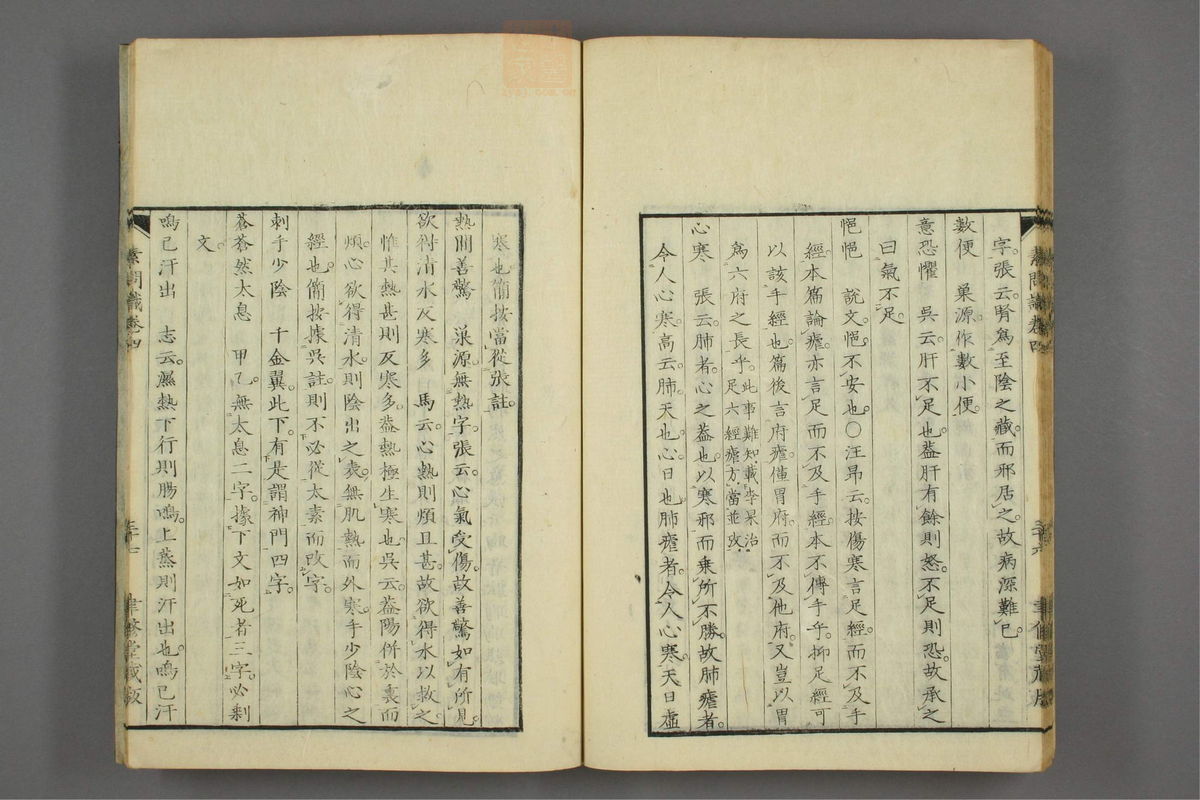 字。張云。腎為至陰之藏。而邪居之。故病深難已。
數便　巢源。作數小便。
意恐懼　吳云。肝不足也。蓋肝有餘則怒。不足則恐。故承之
曰氣不足。
悒悒　說文。悒。不安也。○汪昂云。按傷寒言足經。而不及手
經。本篇論瘧。亦言足而不及手經。本不傳手乎。抑足經可
以該手經也。篇後言府瘧。僅胃府。而不及他府。又豈以胃
為六府之長乎。此事難知載李杲治足六經瘧方。當並攷
心寒　張云。肺者。心之蓋也。以寒邪而乘所不勝。故肺瘧者。
令人心寒。高云。肺天也。心日也。肺瘧者。令人心寒。天日虛
素問識卷四　三十六　聿修堂藏版
寒也。簡按當從張註。
熱間善驚　巢源。無熱字。張云。心氣受傷。故善驚如有所見。
欲得清水反寒多　馬云。心熱則煩且甚。故欲得水以救之。
惟其熱甚則反寒多。蓋熱極生寒也。吳云。蓋陽併於裏而
煩。心欲得清水。則陰出之表。無肌熱而外寒。手少陰心之
經也。簡按據吳註。則不必從太素而改字。
刺手少陰　千金翼。此下。有是謂神門四字。
蒼蒼然太息　甲乙。無太息二字。據下文如死者三字。必剩
文。
鳴已汗出　志云。濕熱下行則腸鳴。上蒸則汗出也。鳴已汗
素問識卷四　三十七　聿修堂藏版